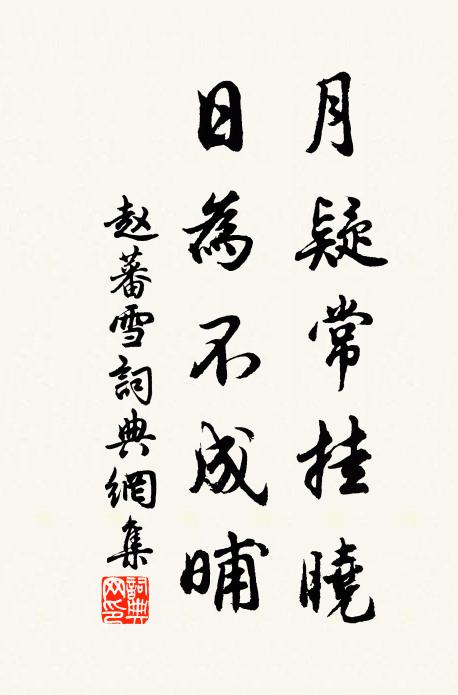 月疑常挂曉
日為不成晡
赵蕃雪詞典網集
詞典网印